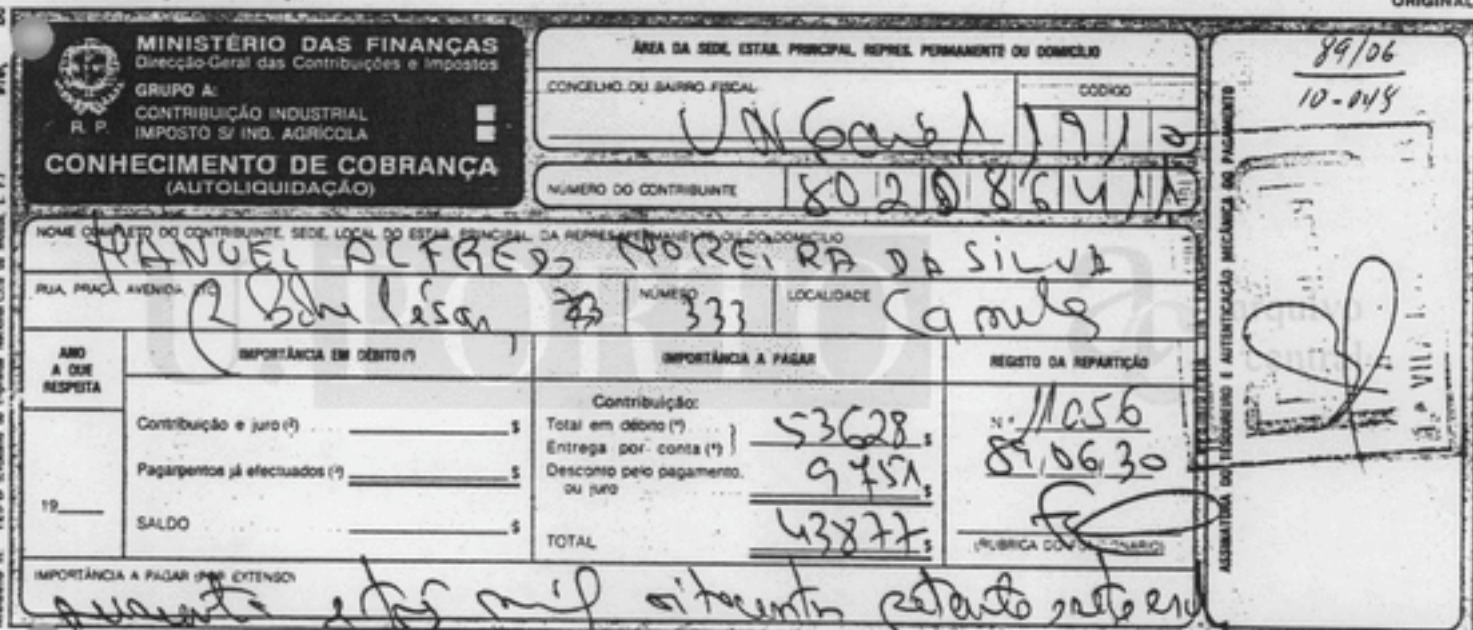 ORIGINAL
MINISTÉRIO DAS FINANÇAS
Direcção-Geral das Contribuições e Impostos
GRUPO A:
CONTRIBUIÇÃO INDUSTRIAL
IMPOSTO S/ IND. AGRÍCOLA
R. P.
CONHECIMENTO DE COBRANÇA
(AUTOLIQUIDAÇÃO)
ÁREA DA SEDE, ESTAB. PRINCIPAL, REPRES. PERMANENTE OU DOMICÍLIO
CONCELHO OU BAIRRO FISCAL
CODIGO
1910
NÚMERO DO CONTRIBUINTE
802086411
89/06
10-048
ASSINATURA DO TESOUREIRO E AUTENTICAÇÃO MECÂNICA DO PAGAMENTO
NOME COMPLETO DO CONTRIBUINTE, SEDE, LOCAL DO ESTAB. PRINCIPAL, DA REPRES. PERMANENTE OU DO DOMICÍLIO
MANUEL ALFREDO MOREIRA DA SILVA
RUA, PRAÇA, AVENIDA, ETC.
NÚMERO
333
LOCALIDADE
U. PORTO
ANO A QUE RESPEITA
19
IMPORTÂNCIA EM DÉBITO (¹)
Contribuição e juro (²) $
Pagamentos já efectuados (³) $
SALDO $
IMPORTÂNCIA A PAGAR
Contribuição:
Total em débito (⁴)
Entrega por conta (⁴)
53628 $
Desconto pelo pagamento, ou juro
9751 $
TOTAL 43877 $
REGISTO DA REPARTIÇÃO
N.º 11056
89,06,30
(RUBRICA DO FUNCIONÁRIO)
IMPORTÂNCIA A PAGAR (POR EXTENSO)
quarenta e três mil oitocentos setenta sete esc